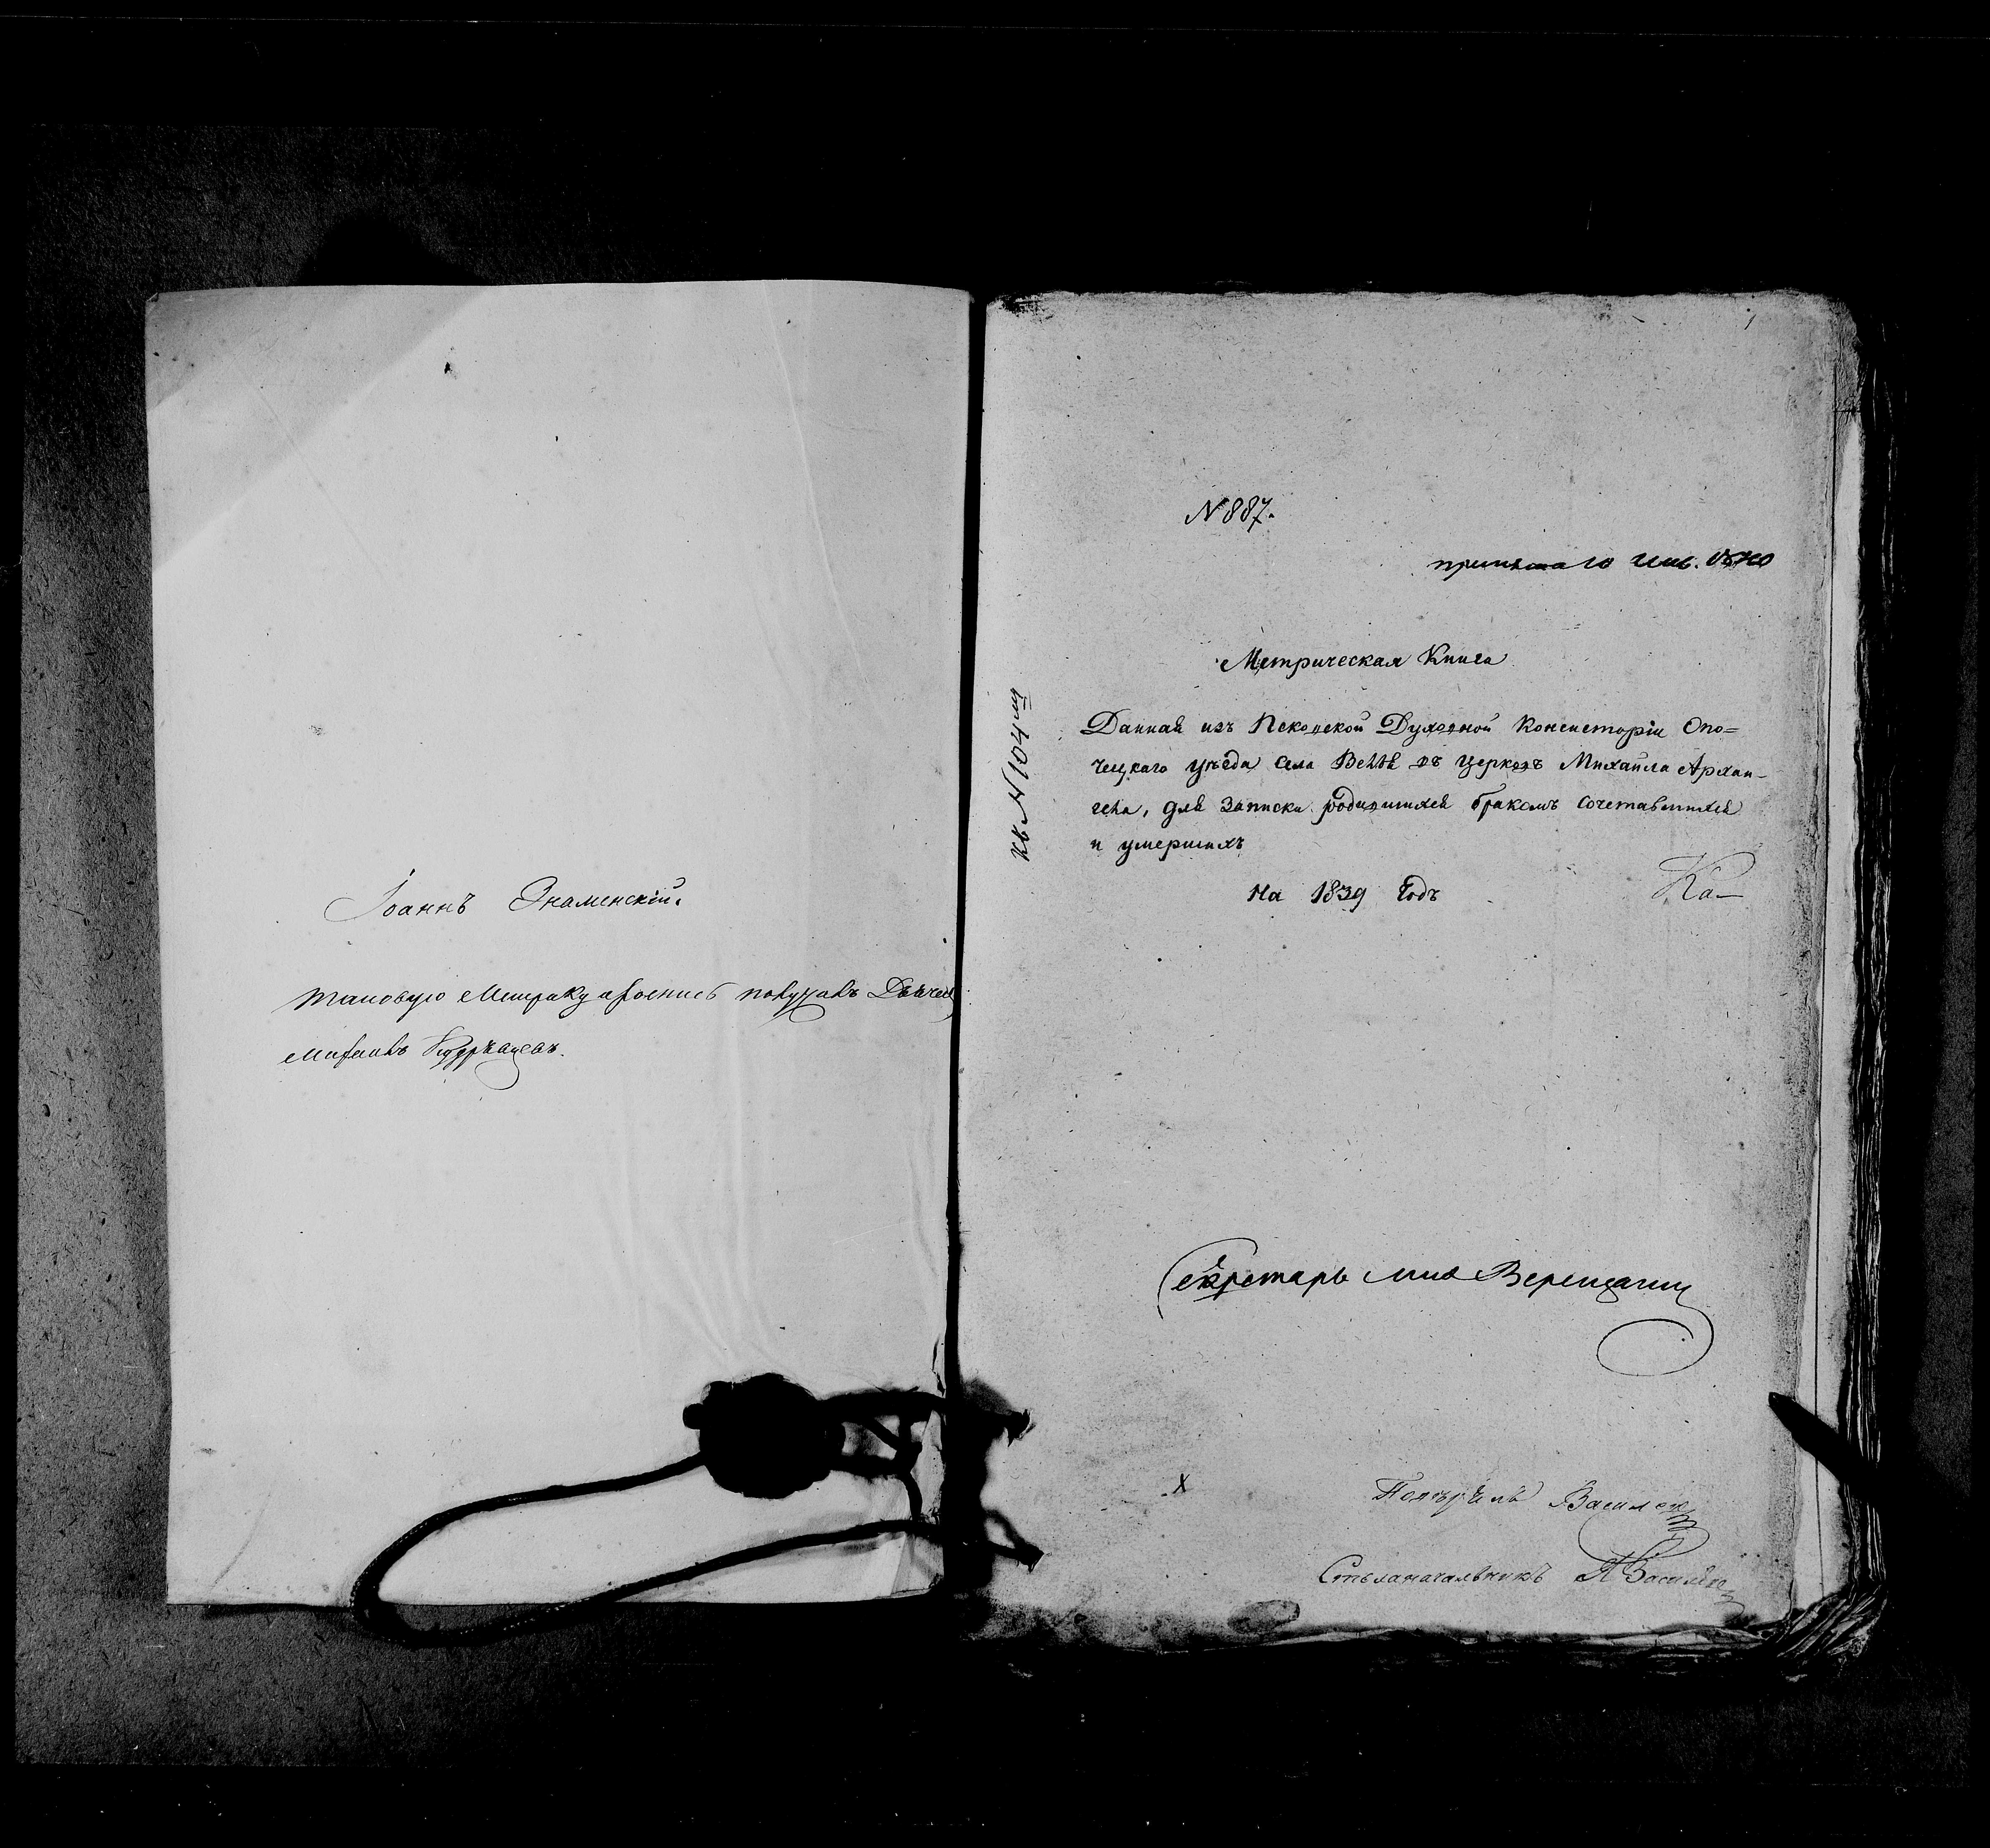 Іоаннъ Знаменскій.
таковую Метрику и роспись получилъ Дьячекъ
Михаилъ
1
N 887.
принята 10 Генв. 1840
къ N 104му
Метрическая Книга
Данная изъ Псковской Духовной Консисторіи Опо=
чецкаго уѣзда Села Велѣе въ Церковь Михаила Архан-
гела, для Записки родившихся бракомъ сочетавшихся
и умершихъ
На 1839 Годъ
Ка-
Секретарь Мих Верещагин
X
Повѣрилъ Василев
Столоначальникъ А Василев